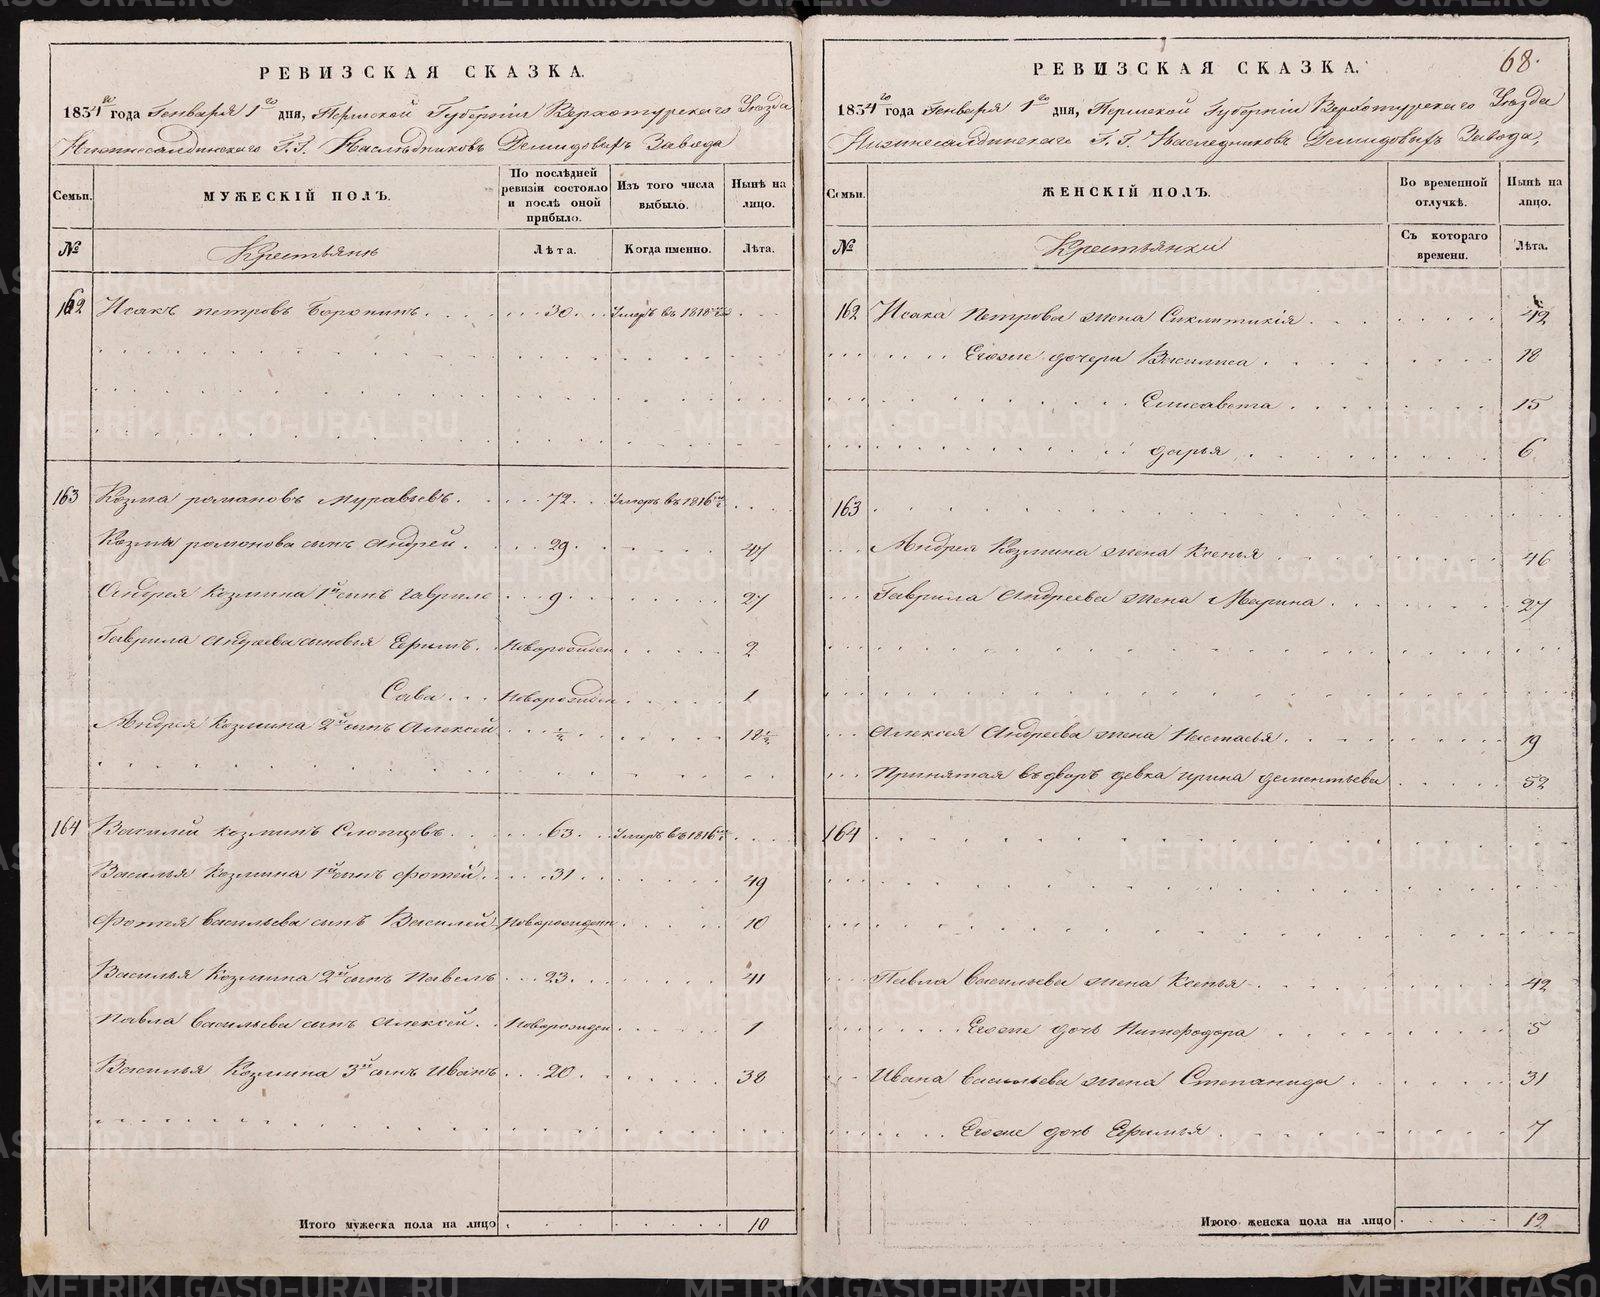 РЕВИЗСКАЯ СКАЗКА.
1834го года Генваря 1го дня, Пермской Губернiи Верхотурскаго Уѣзда
Нижнесалдинскаго Г.Г. Наслѣдниковъ Демидовыхъ Завода
Семьи. МУЖЕСКIЙ ПОЛЪ. По послѣдней ревизiи состояло и послѣ оной прибыло. Изъ того числа выбыло. Нынѣ на лицо.
№ Крестьянъ Лѣта. Когда именно. Лѣта.
162 Исакъ петровъ 30 Умеръ въ 1818
163 Козма романовъ Муравьевъ 72 Умеръ въ 1816
Козмы романова сынъ Андрей 29 47
Андрея Козмина 1й сынъ гаврило 9 27
Гаврила Андреева сыновья Ефимъ Новорожден 2
Сава Новорожден 1
Андрея Козмина 2й сынъ Алексей ½ 18½
164 Василий козминъ Слопцовъ 63 Умеръ въ 1816
Василья Козмина 1й сынъ фотей 31 49
Фотея Васильева сынъ Василей Новорожден 10
Василья Козмина 2й сынъ Павелъ 23 41
Павла Васильева сынъ Алексей Новорожден 1
Василья Козмина 3й сынъ Иванъ 20 38
Итого мужеска пола на лицо 10
68.
РЕВИЗСКАЯ СКАЗКА.
1834го года Генваря 1го дня, Пермской Губернiи Верхотурскаго Уѣзда
Нижнесалдинскаго Г.Г. Наследниковъ Демидовыхъ Завода,
Семьи. ЖЕНСКIЙ ПОЛЪ. Во временной отлучкѣ. Нынѣ на лицо.
№ Крестьянки Съ котораго времени. Лѣта.
162 Исака Петрова жена Сиклитикiя 42
Егоже дочери Василиса 18
Елисавета 15
дарья 6
163
Андрея Козмина жена Ксенья 46
Гаврила Андреева жена Марина 27
Алексея Андреева жена Настасья 19
Принятая въ дворъ девка ирина дементьева 52
164
Павла Васильева жена Ксенья 42
Егоже дочь Нимфодора 5
Ивана Васильева жена Степанида 31
Егоже дочь Ефимья 7
Итого женска пола на лицо 12
METRIKI.GASO-URAL.RU